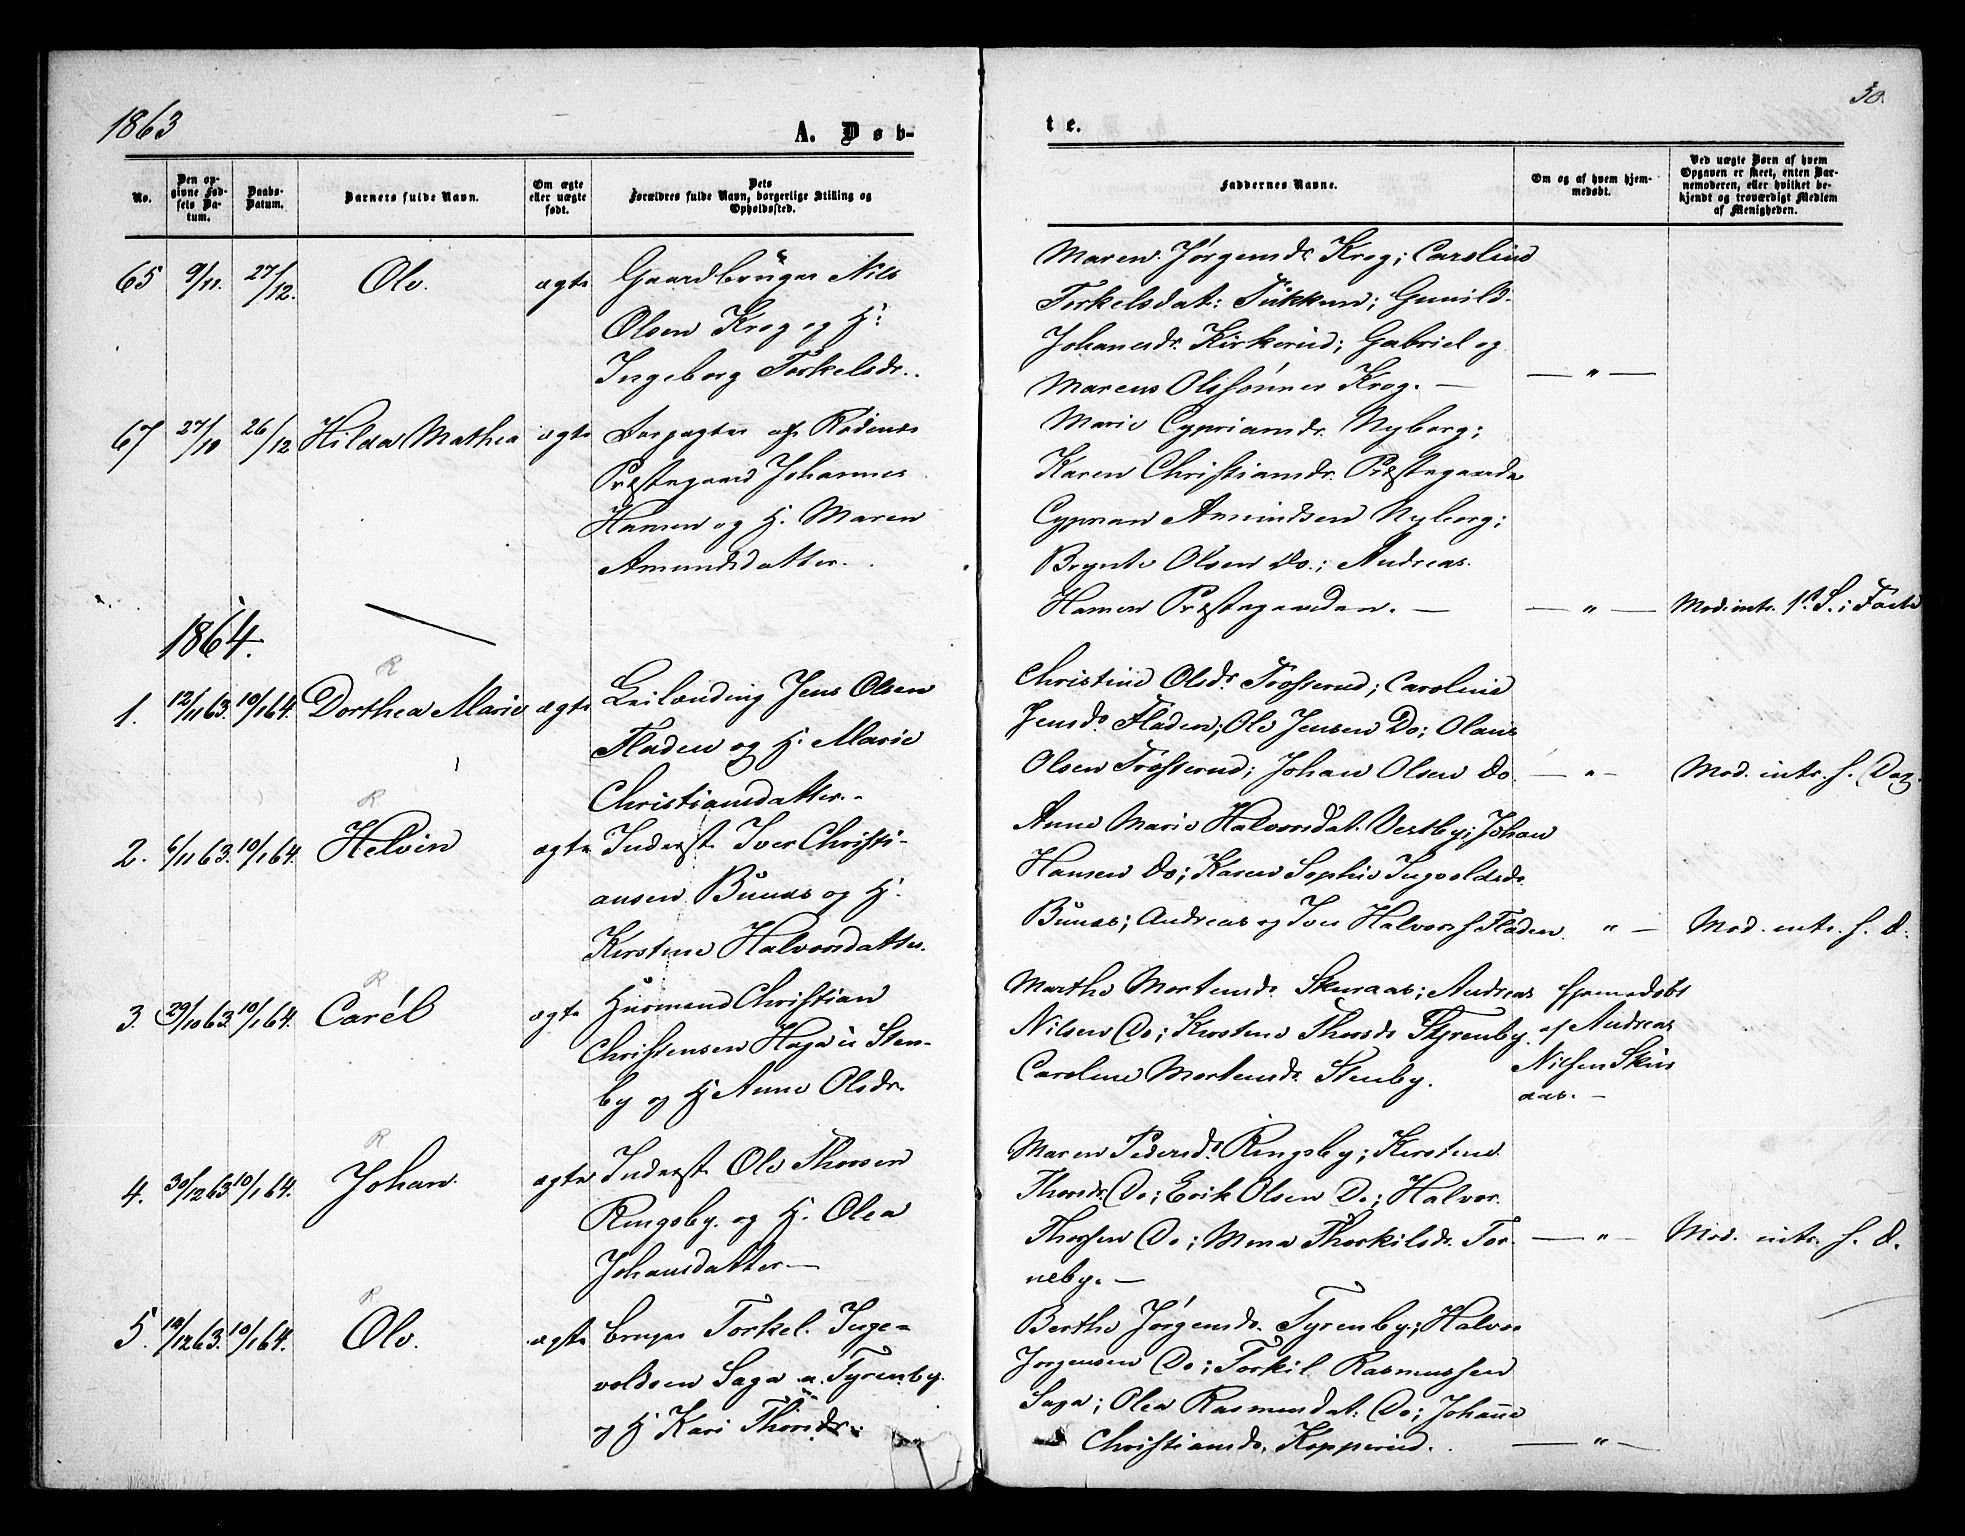 1863
A. Døb-
No.
Den op-
givne Fød-
sels Da-
tum.
Daabs-
Datum.
Barnets fulde Navn.
Om ægte
eller uægte
født.
Dets
Forældres fulde Navn, borgerlige Stilling og
Opholdssted.
65 9/11. 27/12. Ole. ægte Gaardbruger Nils
Olsen Krog og H:
Ingeborg Torkelsdr.
67 27/10 26/12 Hilda Mathea ægte Forpagter af Rødenes
Præstegaard Johannes
Hansen og H. Maren
Amundsdatter.
1864.
R
1. 12/11 63. 10/1 64. Dorthea Marie ægte Leilænding Jens Olsen
Fladen og H. Marie
Christiansdatter.-
R
2. 6/11 63. 10/1 64. Helvin ægte Inderst Iver Christi-
ansen Buuas og H.
Kirstine Halvorsdatter.
R
3. 29/10 63 10/1 64. Carél ægte Husmand Christian
Christensen Haga u Sten-
by og H Anne Olsdr.
R
4. 30/12 63 10/1 64. Johan. ægte Inderst Ole Thorsen
Ringsby. og H. Olea
Johansdatter—
R
5. 10/1 64. Ole. ægte Bruger Torkel Inge-
voldsen Saga u. Tyrenby.
og H Kari Thorsdr.
30.
te.
Faddernes Navne.
Om og af hvem hjem-
medøbt.
Ved uægte Børn af hvem
Opgaven er skeet, enten Bar-
nemoderen, eller hvilket be-
kjendt og troværdigt Medlem
af Menigheden.
Maren Jørgensdr. Krog; Caroline
Torkelsdat: Gunild
Johanesdr. Kirkerud; Gabriel og
Marcus Olssønner Krog. — — " —
Marie Cypriansdr. Nyborg;
Karen Christiansdr. Præstegaarden
Cyprian Amundsen Nyborg;
Brynte Olsen Do.; Andreas
Hansen Præstegaarden. — — " — Mod. intr. 1st S. i Faste
Christine Olsdr. Trosterud; Caroline
Jensdr. Fladen; Ole Jensen Do; Olaus
Olsen Trosterud; Johan Olsen Do. — " — Mod. intr. s. Dag.
Anne Marie Halvorsdat. Vestby; Johan
Hansen Do; Karen Sophie Ingvoldsdr.
Buuas; Andreas og Iver Halvorss Fladen. " — Mod. intr. s. d.
Marthe Mortensdr. Skuraas; Andreas hjemmedøbt
Nilsen Do; Kirstine Thorsdr Tyrenby. af Andreas
Caroline Mortensdr. Stenby. Nilsen Skur
aas. —
Maren Pedersdr. Ringsby; Kirstine
Thorsdr. Do; Erik Olsen Do; Halvor
Thorsen Do; Mina Thorkilsdr. Tor- — " — Mod. intr. s. d.
neby. —
Berthe Jørgensdr. Tyrenby; Halvor
Jørgensen Do; Torkil Rasmussen
Saga; Olea Rasmusdat: Do; Johanne
Christiansdr. Kopperud. — " —